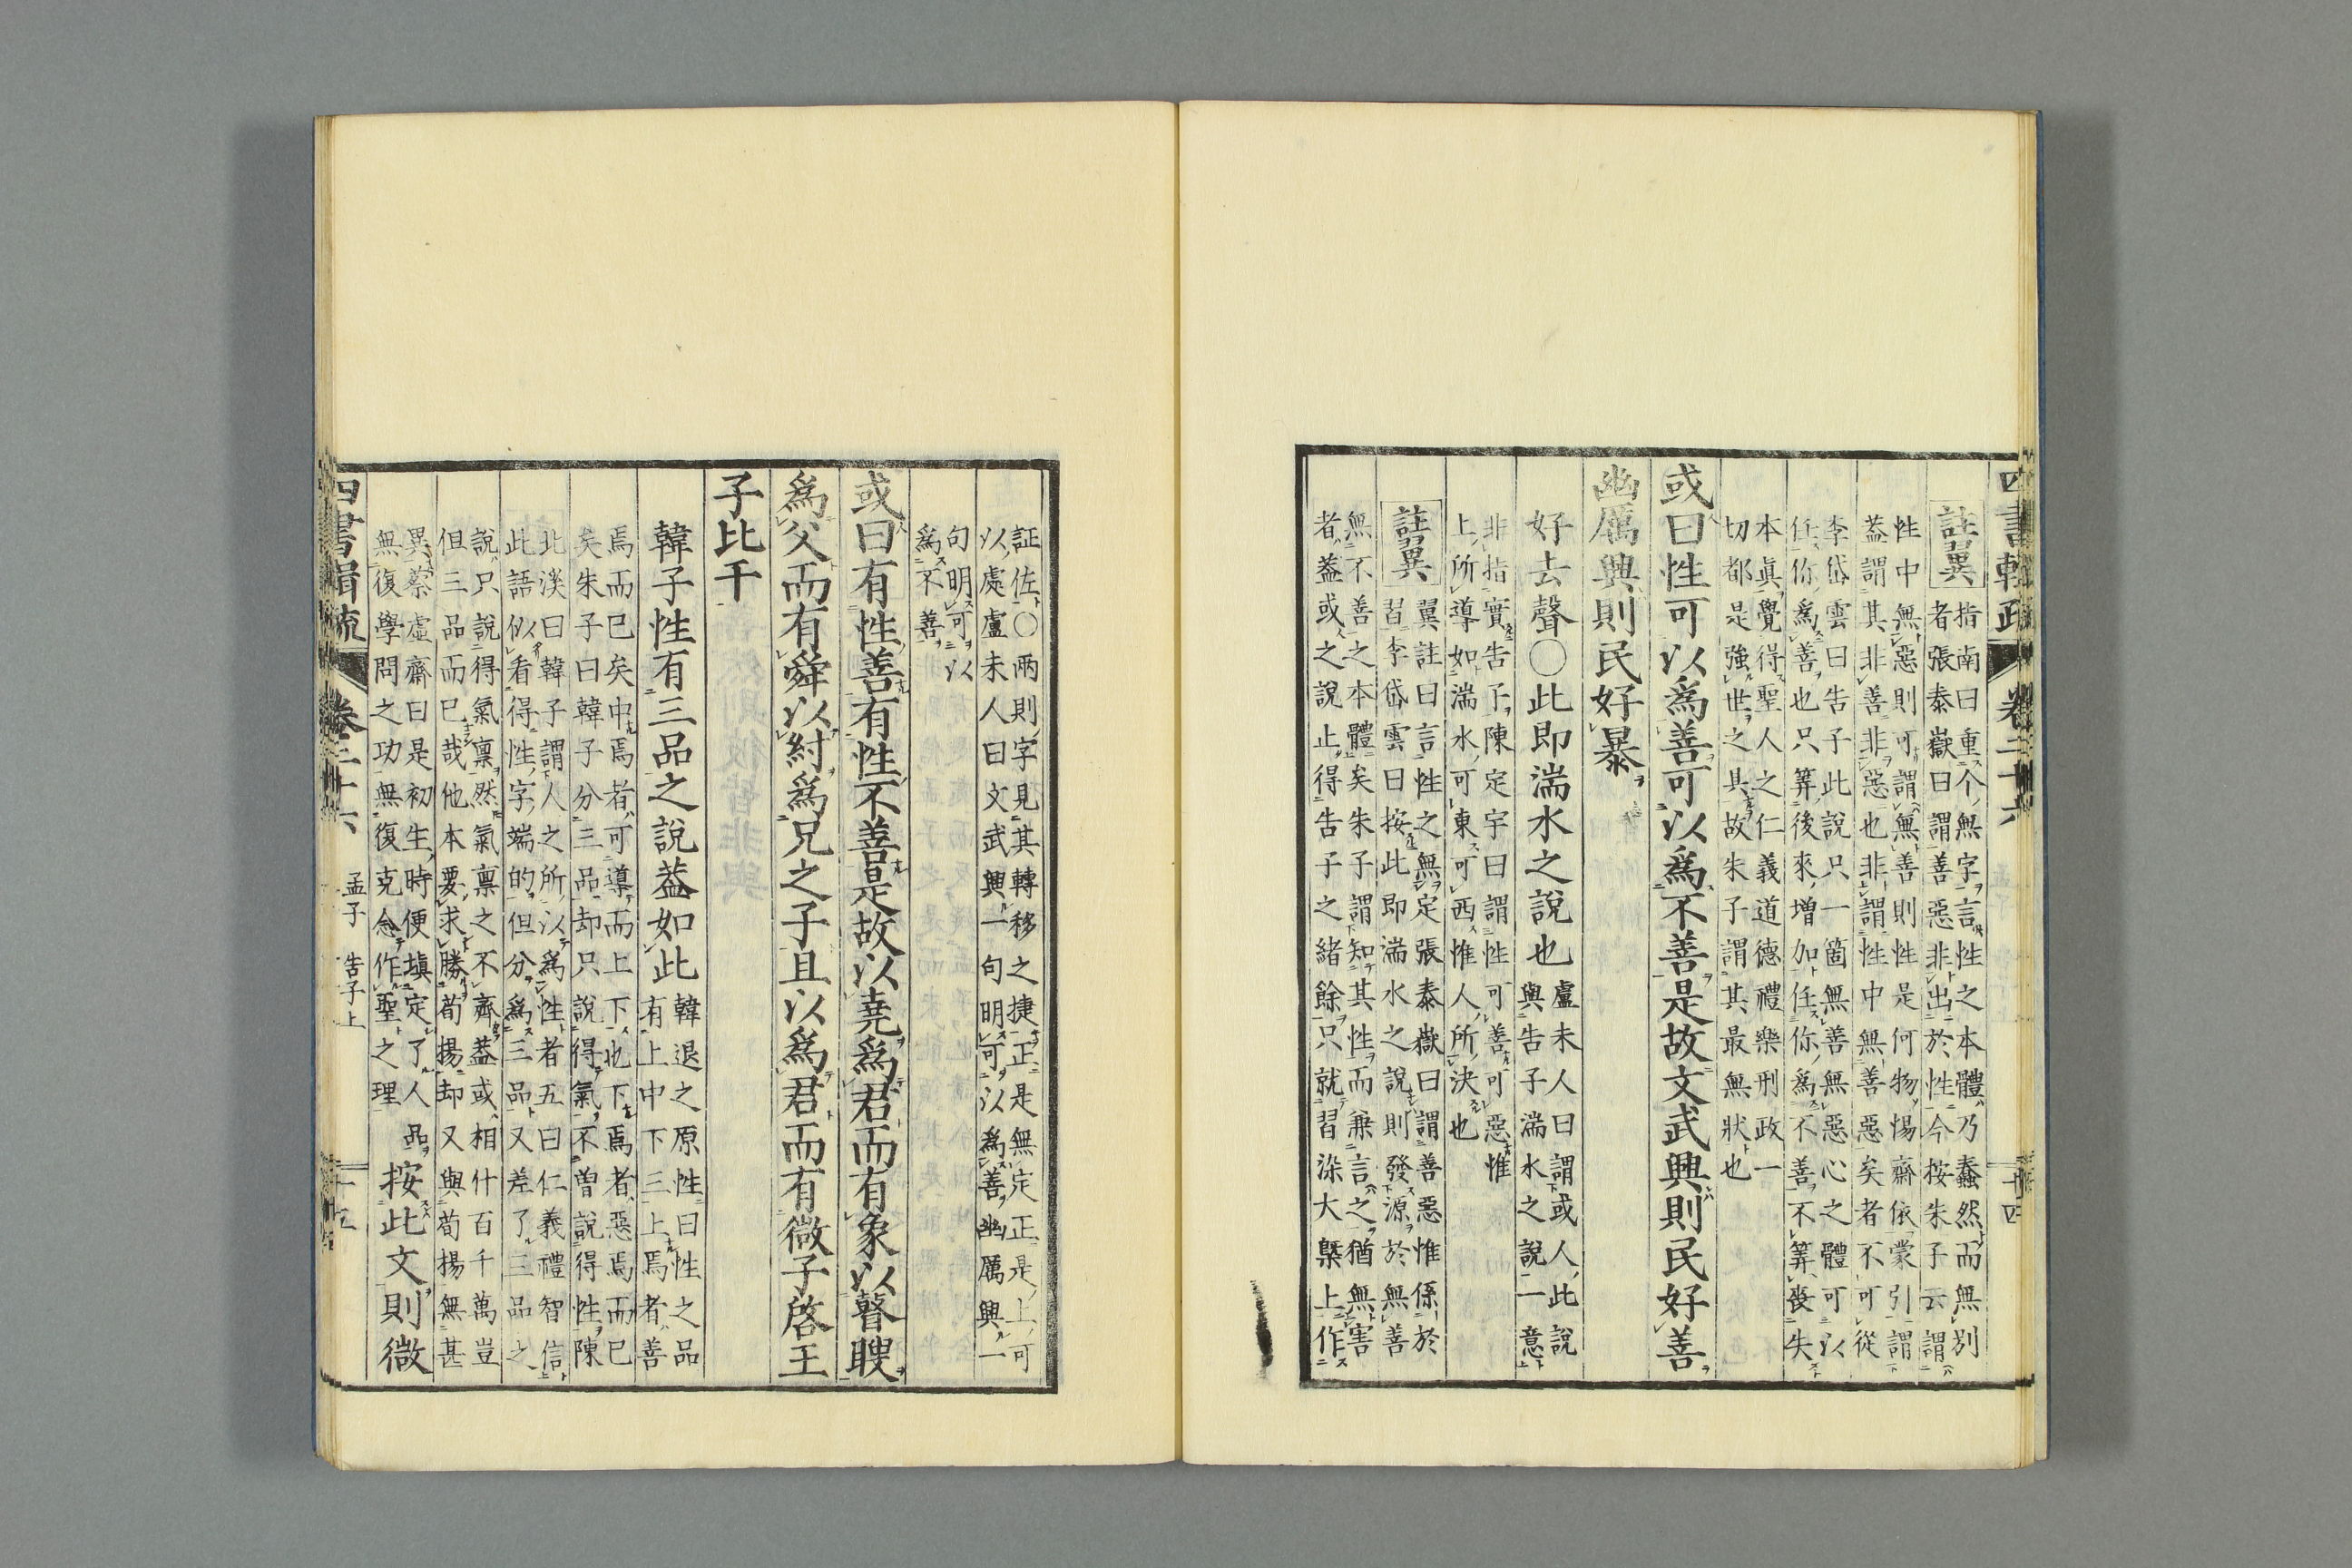 四書輯疏 卷二十六 二十四
註翼
指南曰重个無字言性之本體乃蠢然而無別
者張泰嶽曰謂善惡非出於性今按朱子云謂
性中無惡則可謂無善則性是何物惕齋依蒙引謂
蓋謂其非善非惡也非謂性中無善惡矣者不可從
李岱雲曰告子此說只一箇無善無惡心之體可以
任你爲善也只筭後來增加任你爲不善不筭喪失
本眞覺得聖人之仁義道德禮樂刑政一
切都是強世之具故朱子謂其最無狀也
或曰性可以爲善可以爲不善是故文武興則民好善
幽厲興則民好暴
好去聲〇此即湍水之說也
盧未人曰謂或人此說
與告子湍水之說一意
非指實告子陳定宇曰謂性可善可惡惟
上所導如湍水可東可西惟人所決也
註翼
翼註曰言性之無定張泰嶽曰謂善惡惟係於
習李岱雲曰按此即湍水之說則發源於無善
無不善之本體矣朱子謂知其性而兼言之猶無害
者蓋或之說止得告子之緒餘只就習染大槩上作
証佐〇兩則字見其轉移之捷正是無定正是上可
以處盧未人曰文武興一句明可以爲善幽厲興一
句明可以
爲不善
或曰有性善有性不善是故以堯爲君而有象以瞽瞍
爲父而有舜以紂爲兄之子且以爲君而有微子啓王
子比干
韓子性有三品之說蓋如此
韓退之原性曰性之品
有上中下三上焉者善
焉而已矣中焉者可導而上下也下焉者惡焉而已
矣朱子曰韓子分三品却只說得氣不曾說得性陳
北溪曰韓子謂人之所以爲性者五曰仁義禮智信
此語似看得性字端的但分爲三品又差了三品之
說只說得氣稟然氣稟之不齊蓋或相什百千萬豈
但三品而已哉他本要求勝荀揚却又與荀揚無甚
異蔡虛齋曰是初生時便塡定了人品
無復學問之功無復克念作聖之理
按此文則微
四書輯疏 卷二十六 孟子 告子上 二十五